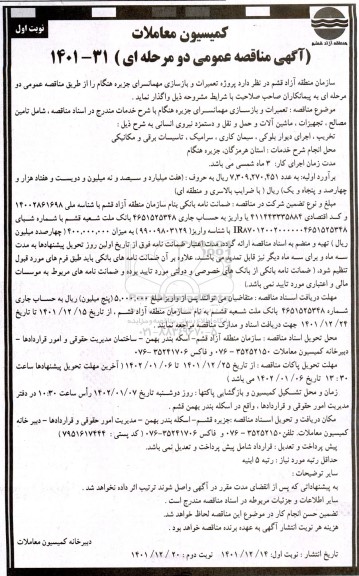 نوبت اول
کمیسیون معاملات
(آگهی مناقصه عمومی دو مرحله ای) ۳۱-۱۴۰۱
سازمان منطقه آزاد قشم
سازمان منطقه آزاد قشم در نظر دارد پروژه تعمیرات و بازسازی مهمانسرای جزیره هنگام را از طریق مناقصه عمومی دو
مرحله ای به پیمانکاران صاحب صلاحیت با شرایط مشروحه ذیل واگذار نماید.
موضوع مناقصه: تعمیرات و بازسازی مهمانسرای جزیره هنگام با شرح خدمات مندرج در اسناد مناقصه، شامل تامین
مصالح، تجهیزات، ماشین آلات و حمل و نقل و دستمزد نیروی انسانی به شرح ذیل:
تخریب، اجرای دیوار بلوکی، سیمان کاری، سرامیک، تاسیسات برقی و مکانیکی
محل انجام شرح خدمات: استان هرمزگان، جزیره هنگام
مدت زمان اجرای کار: ۳ ماه شمسی می باشد.
برآورد اولیه: به عدد ۷,۳۰۹,۲۷۰,۴۵۱ ریال به حروف: (هفت میلیارد و سیصد و نه میلیون و دویست و هفتاد هزار و
چهارصد و پنجاه و یک) ریال (با ضرایب بالاسری و منطقه ای)
مبلغ و نوع تضمین شرکت در مناقصه: ضمانت نامه بانکی بنام سازمان منطقه آزاد قشم با شناسه ملی ۱۴۰۰۲۸۶۱۶۹۸
و کد اقتصادی ۴۱۱۴۲۳۳۳۵۸۸۴ یا واریز به حساب جاری ۴۶۵۱۵۲۵۳۴۸ بانک ملت شعبه قشم با شماره شبای
با شناسه واریز به میزان ۴۰۰,۰۰۰,۰۰۰ (چهارصد میلیون
ریال) تهیه و منضم به اسناد مناقصه ارائه گردد. مدت اعتبار ضمانت نامه فوق از تاریخ اولین روز تحویل پیشنهادها به مدت
سه ماه و برای سه ماه دیگر نیز قابل تمدید می باشد، علاوه بر آن ضمانت نامه های بانکی باید طبق فرم های مورد قبول
تنظیم شود. (ضمانت نامه بانکی از بانک های خصوصی و دولتی مورد تایید بوده و ضمانت نامه های مربوط به موسسات
مالی و اعتباری مورد تایید نمی باشد)
مهلت دریافت اسناد مناقصه: متقاضیان می توانند پس از واریز مبلغ ۵,۰۰۰,۰۰۰ (پنج میلیون) ریال به حساب جاری
شماره ۴۶۵۱۵۲۵۳۴۸ بانک ملت شعبه قشم به نام سازمان منطقه آزاد قشم، از تاریخ ۱۴۰۱/۱۲/۱۵ تا تاریخ
۱۴۰۱/۱۲/۲۴ جهت دریافت اسناد و مدارک مناقصه مراجعه نمایند
محل تحویل اسناد مناقصه: سازمان منطقه آزاد قشم- اسکله بندر بهمن - ساختمان مدیریت حقوقی و امور قراردادها -
دبیرخانه کمیسیون معاملات ۳۵۲۵۲۱۵۰-۰۷۶ و فاکس ۳۵۲۴۱۷۰۶-۰۷۶
مهلت تحویل پاکات مناقصه: از تاریخ ۱۴۰۱/۱۲/۲۵ تا ۱۴۰۲/۰۱/۰۶ (آخرین مهلت تحویل پیشنهادها ساعت
۱۳:۳۰ تاریخ ۱۴۰۲/۰۱/۰۶ می باشد)
زمان و محل تشکیل کمیسیون و بازگشایی پاکتها: روز دوشنبه تاریخ ۱۴۰۲/۰۱/۰۷ رأس ساعت ۱۰:۳۰ در دفتر
مدیریت امور حقوقی و قراردادها، واقع در اسکله بندر بهمن قشم.
مکان دریافت و تحویل اسناد مناقصه: جزیره قشم- اسکله بندر بهمن - مدیریت امور حقوقی و قراردادها - دبیرخانه
کمیسیون معاملات. تلفن ۳۵۲۵۲۱۵۰-۰۷۶ و فاکس ۳۵۲۴۱۷۰۶-۰۷۶ (کد پستی: ۷۹۵۱۶۱۷۴۴۴)
پیش پرداخت و تعدیل: قرارداد شامل پیش پرداخت و تعدیل نمی باشد.
حداقل رتبه مورد نیاز: رتبه ۵ ابنیه
سایر توضیحات:
به پیشنهاداتی که پس از انقضای مدت مقرر در آگهی واصل شوند ترتیب اثر داده نخواهد شد.
سایر اطلاعات و جزئیات مربوطه در اسناد مناقصه مندرج است.
تضمین حسن انجام کار در موضوع این مناقصه لحاظ خواهد شد.
هزینه هر نوبت انتشار آگهی به عهده برنده مناقصه خواهد بود.
دبیرخانه کمیسیون معاملات
تاریخ انتشار: نوبت اول: ۱۴۰۱/۱۲/۱۴ نوبت دوم: ۱۴۰۱/۱۲/۲۰